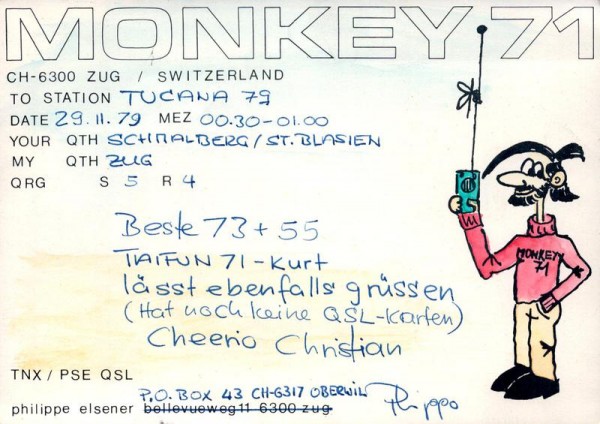 MONKEY 71
CH-6300 ZUG / SWITZERLAND
TO STATION TUCANA 79
DATE 29.11.79 MEZ 00.30-01.00
YOUR QTH SCHMALBERG/ST.BLASIEN
MY QTH ZUG
QRG S 5 R 4
Beste 73 + 55
TAIFUN 71-Kurt
lässt ebenfalls grüssen
(Hat noch keine QSL-Karten)
Cheerio Christian
MONKEY
71
TNX / PSE QSL
P.O. BOX 43 CH-6317 OBERWIL
philippe elsener bellevueweg 11 6300 zug Philippo